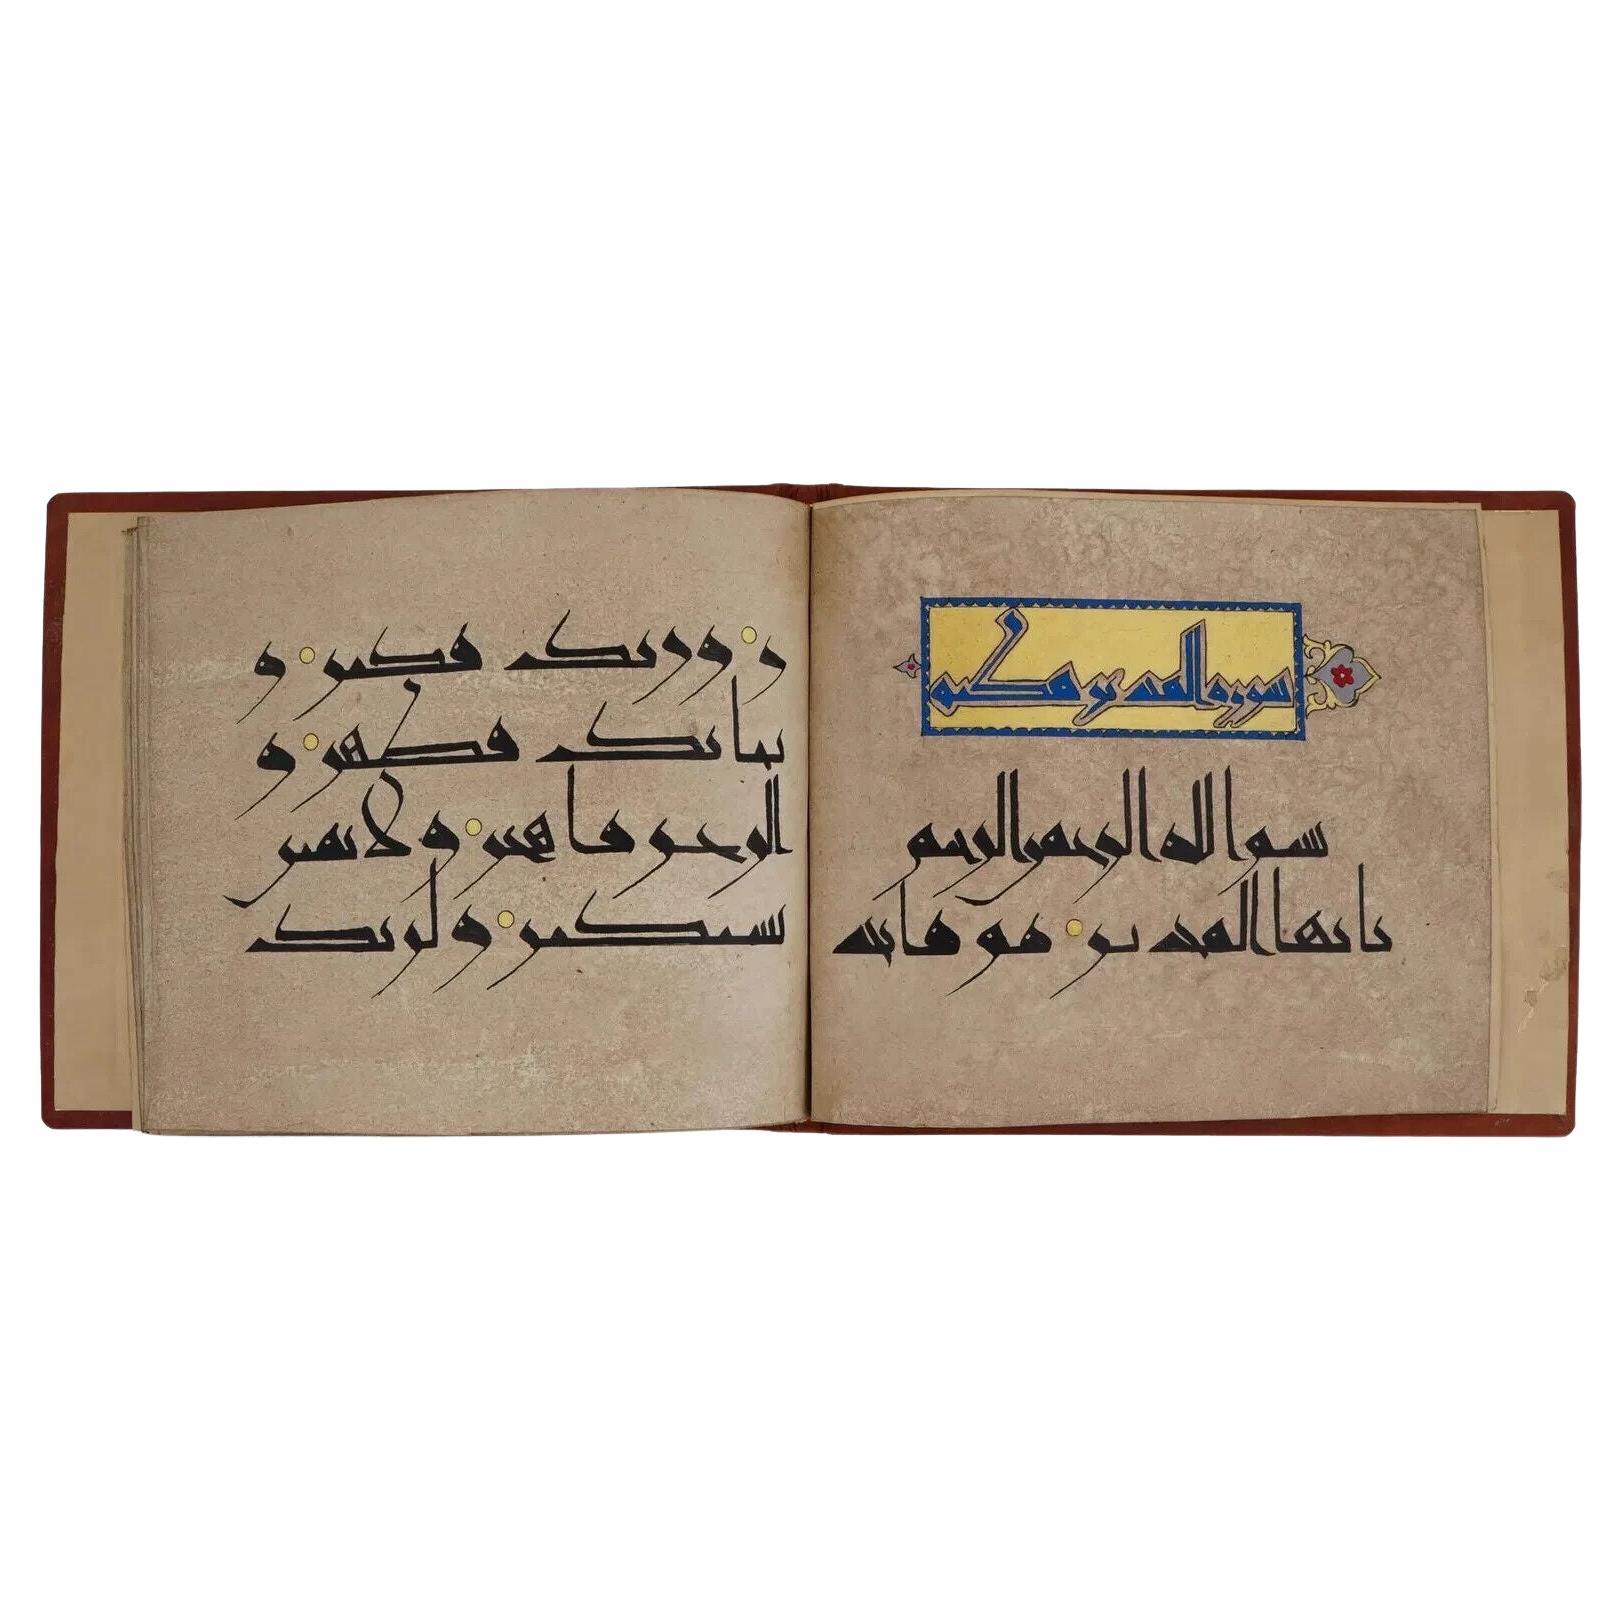 سورة المدثر مكية
بسم الله الرحمن الرحيم
يا يها المدثر قم فانذ
ر وربك فكبر و
ثيابك فطهر و
الرجز فاهجر ولا تمنن
تستكثر ولربك